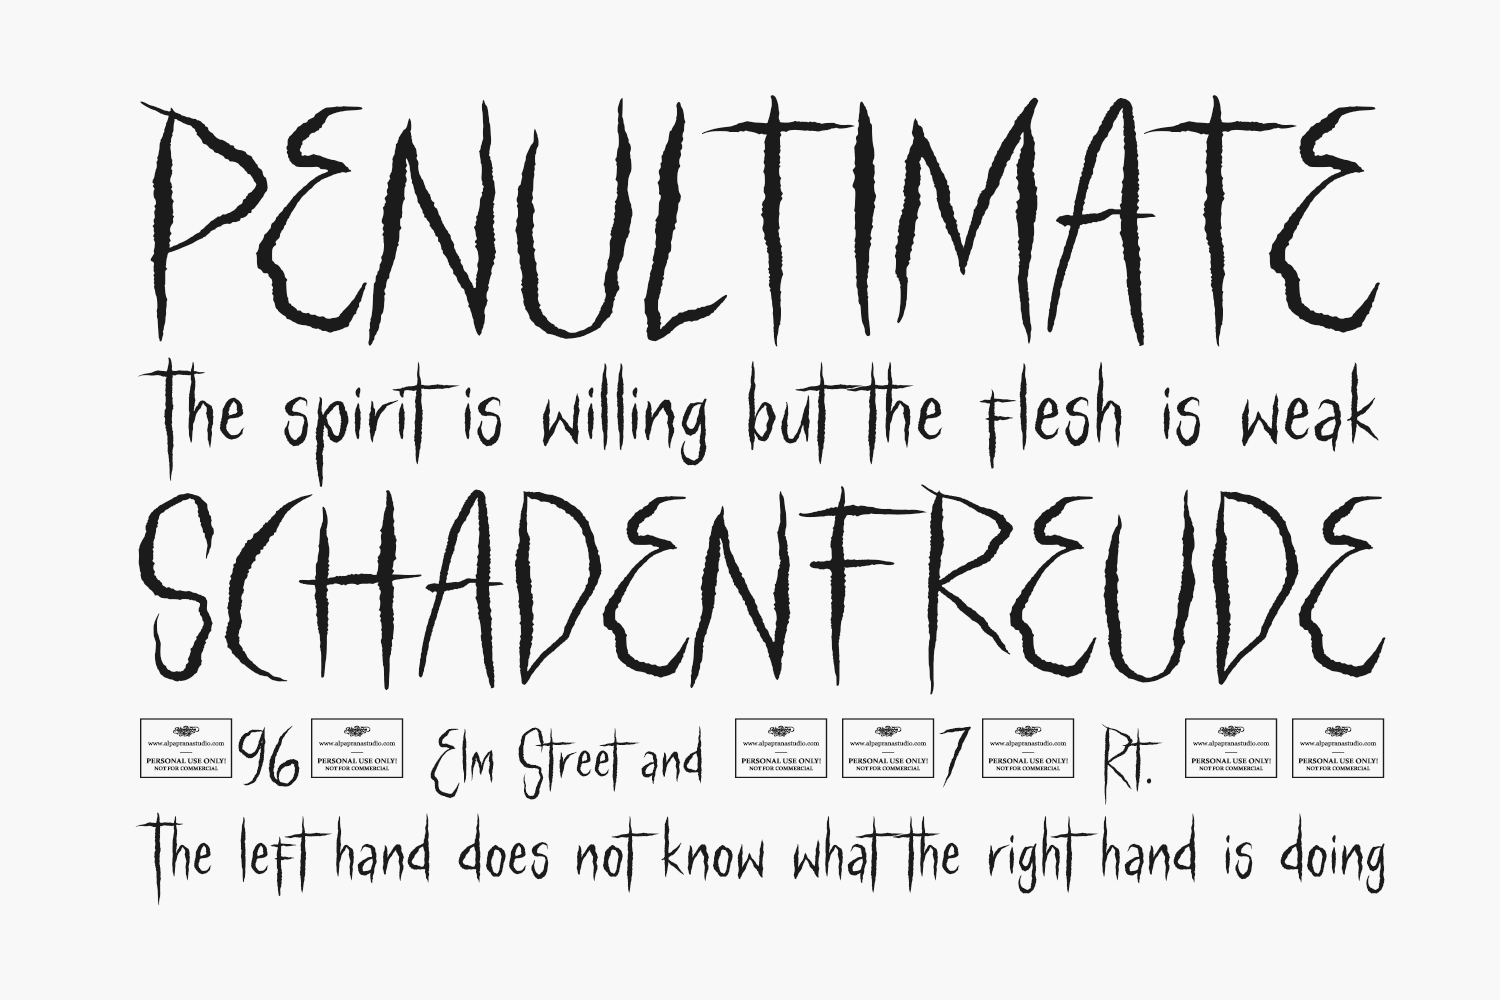 PENULTIMATE
The spirit is willing but the flesh is weak
SCHADENFREUDE
www.alpapranastudio.com PERSONAL USE ONLY! NOT FOR COMMERCIAL 96 www.alpapranastudio.com PERSONAL USE ONLY! NOT FOR COMMERCIAL Elm Street and www.alpapranastudio.com PERSONAL USE ONLY! NOT FOR COMMERCIAL www.alpapranastudio.com PERSONAL USE ONLY! NOT FOR COMMERCIAL 7 www.alpapranastudio.com PERSONAL USE ONLY! NOT FOR COMMERCIAL Rt. www.alpapranastudio.com PERSONAL USE ONLY! NOT FOR COMMERCIAL www.alpapranastudio.com PERSONAL USE ONLY! NOT FOR COMMERCIAL
The left hand does not know what the right hand is doing